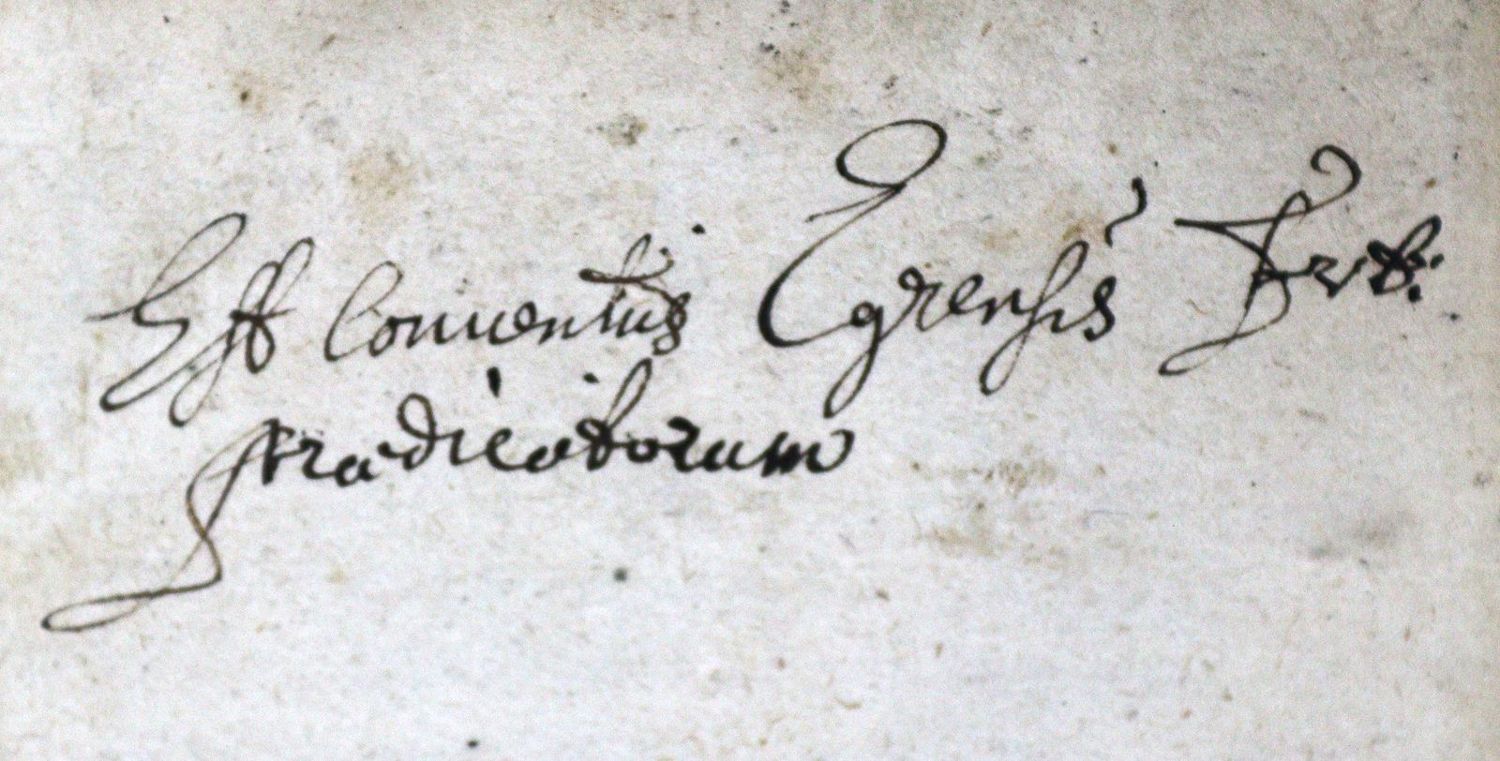 Est Conuentus Egrensis Frů:
Prædicatorum